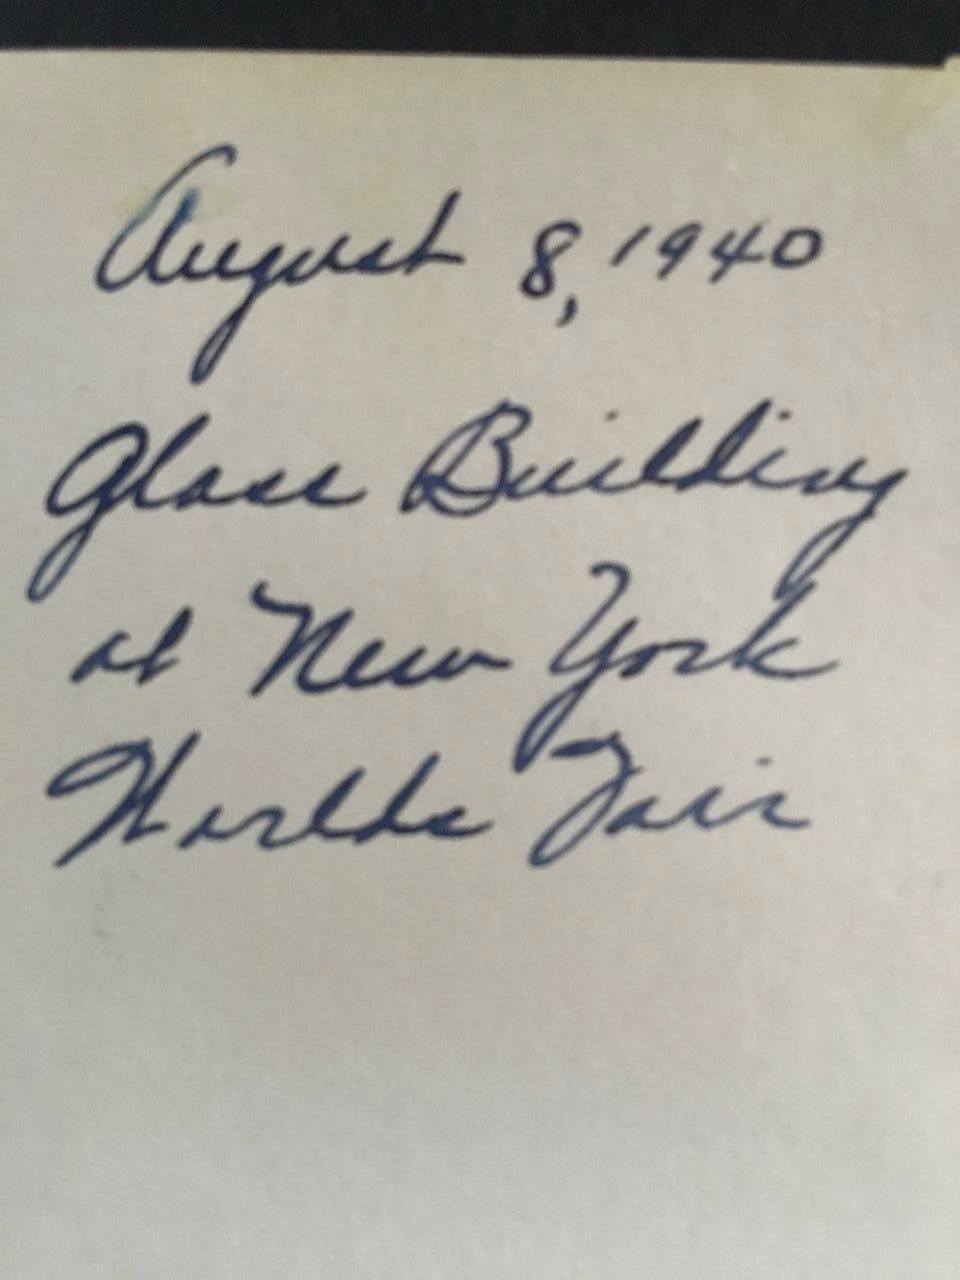 August 8, 1940
Glass Building
at New York
Worlds Fair